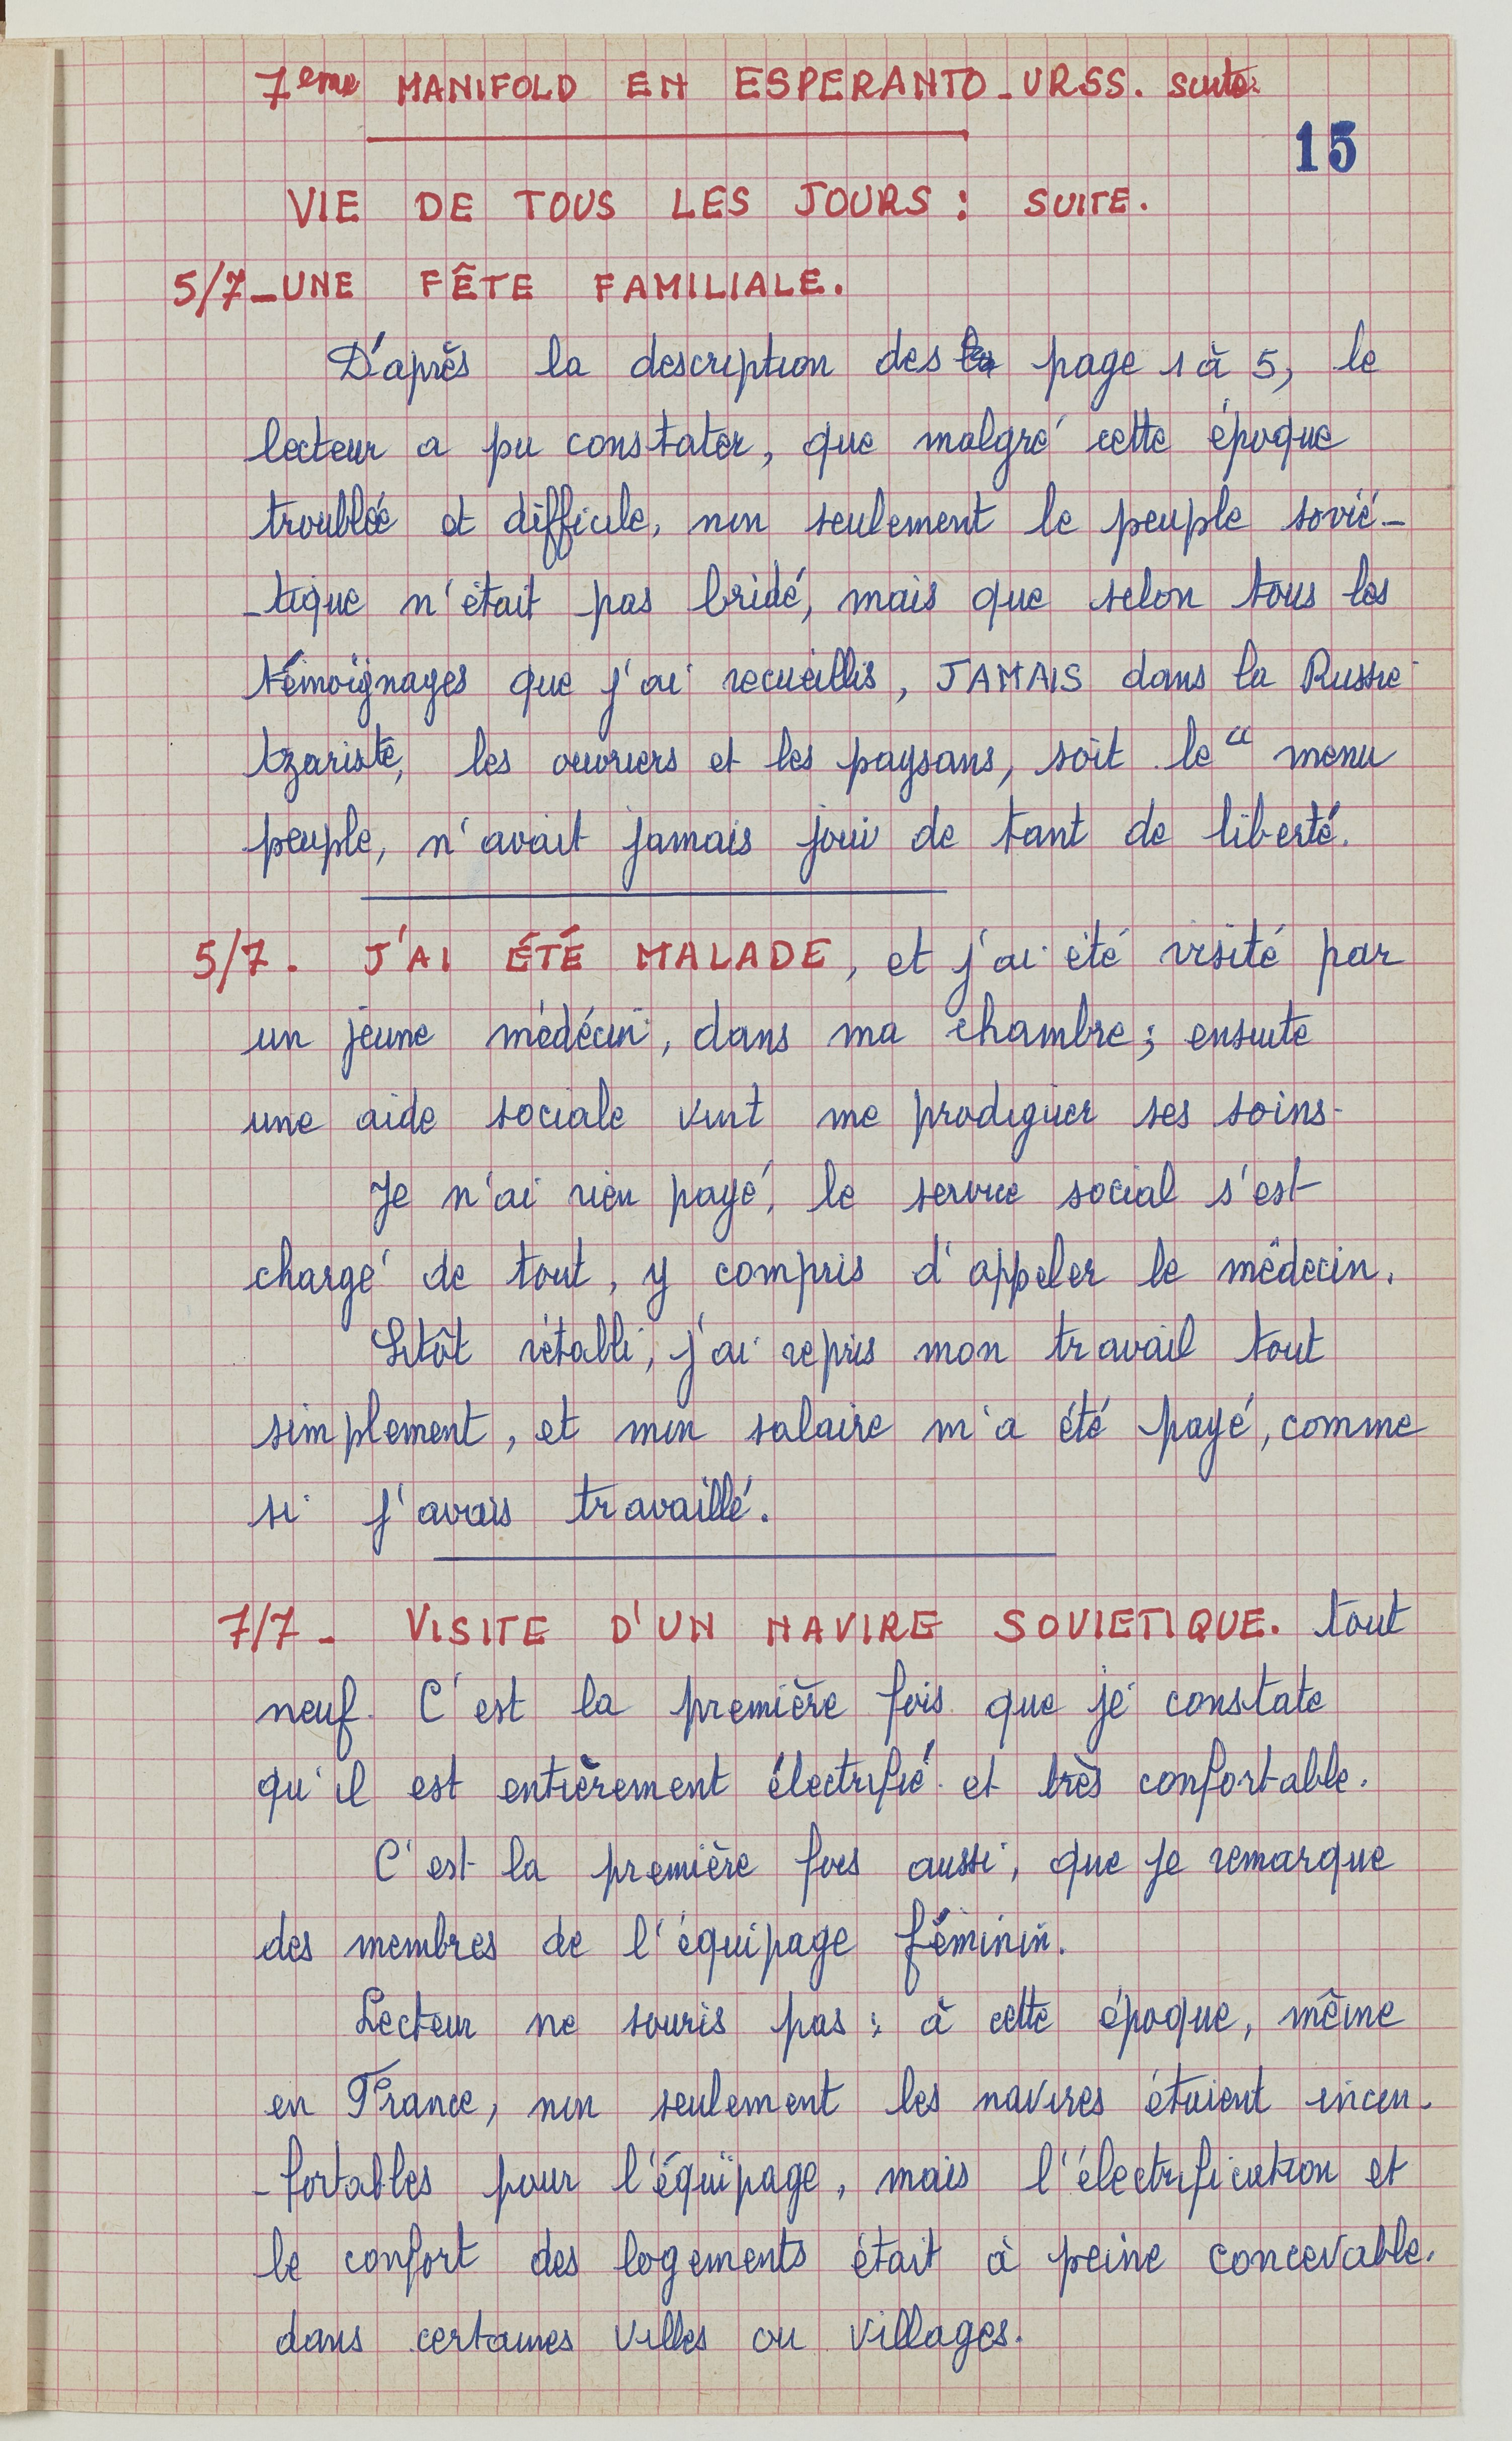 7ème MANIFOLD EN ESPERANTO - URSS. suite.
15
VIE DE TOUS LES JOURS : SUITE.
5/7 - UNE FÊTE FAMILIALE.
D'après la description des page 1 à 5, le
lecteur a pu constater, que malgré cette époque
troublée et difficile, non seulement le peuple sovié-
-tique n'était pas bridé, mais que selon tous les
témoignages que j'ai recueillis, JAMAIS dans la Russie
tzariste, les ouvriers et les paysans, soit le " menu
peuple, n'avait jamais joui de tant de liberté.
5/7. J'AI ÉTÉ MALADE, et j'ai été visité par
un jeune médécin, dans ma chambre ; ensuite
une aide sociale vint me prodiguer ses soins.
Je n'ai rien payé, le service social s'est
chargé de tout, y compris d'appeler le médecin.
Sitôt rétabli, j'ai repris mon travail tout
simplement, et mon salaire m'a été payé, comme
si j'avais travaillé.
7/7 - VISITE D'UN NAVIRE SOVIETIQUE. tout
neuf. C'est la première fois que je constate
qu'il est entièrement électrifié et très confortable.
C'est la première fois aussi, que je remarque
des membres de l'équipage féminin.
Lecteur ne souris pas : à cette époque, même
en France, non seulement les navires étaient incon-
-fortables pour l'équipage, mais l'électrification et
le confort des logements était à peine concevable.
dans certaines villes ou villages.